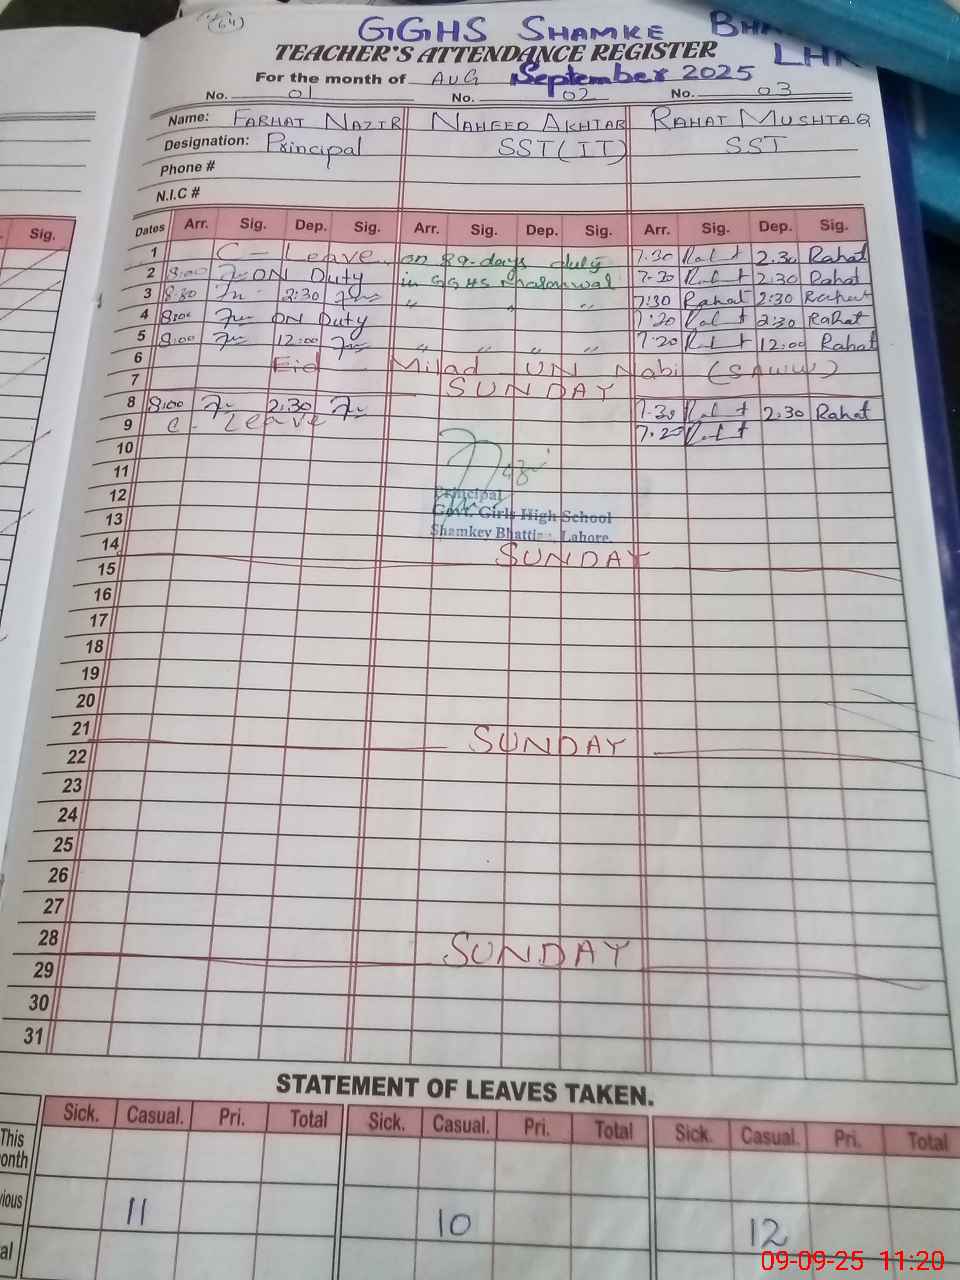 (64)
GGHS SHAMKE
LHR
TEACHER'S ATTENDANCE REGISTER
For the month of AUG September 2025
No. 01 No. 02 No. 03
Name: FARHAT NAZIR NAHEED AKHTAR RAHAT MUSHTAQ
Designation: Principal SST(IT) SST
Phone #
N.I.C #
Dates Arr. Sig. Dep. Sig. Arr. Sig. Dep. Sig. Arr. Sig. Dep. Sig.
Sig.
1 C - Leave on 89-days duty 7.30 2.30 Rahat
2 8:00 ON Duty in GGHS 7.30 2:30 Rahat
3 8:30 2:30 " " 7:30 Rahat 2:30 Rahat
4 8:00 ON Duty 7.20 2:30 Rahat
5 8:00 12:00 " " " " 7.20 12:00 Rahat
6 Eid Milad UN Nabi (SAWW)
7 SUNDAY
8 8:00 2.30 7.30 2.30 Rahat
9 C - Leave 7.20
10
11
12 Principal
13 Govt. Girls High School
Shamkey Bhattian, Lahore.
14 SUNDAY
15
16
17
18
19
20
21 SUNDAY
22
23
24
25
26
27
28 SUNDAY
29
30
31
STATEMENT OF LEAVES TAKEN.
Sick. Casual. Pri. Total Sick. Casual. Pri. Total Sick. Casual. Pri. Total
This
onth
vious 11 10 12
al
09-09-25 11:20